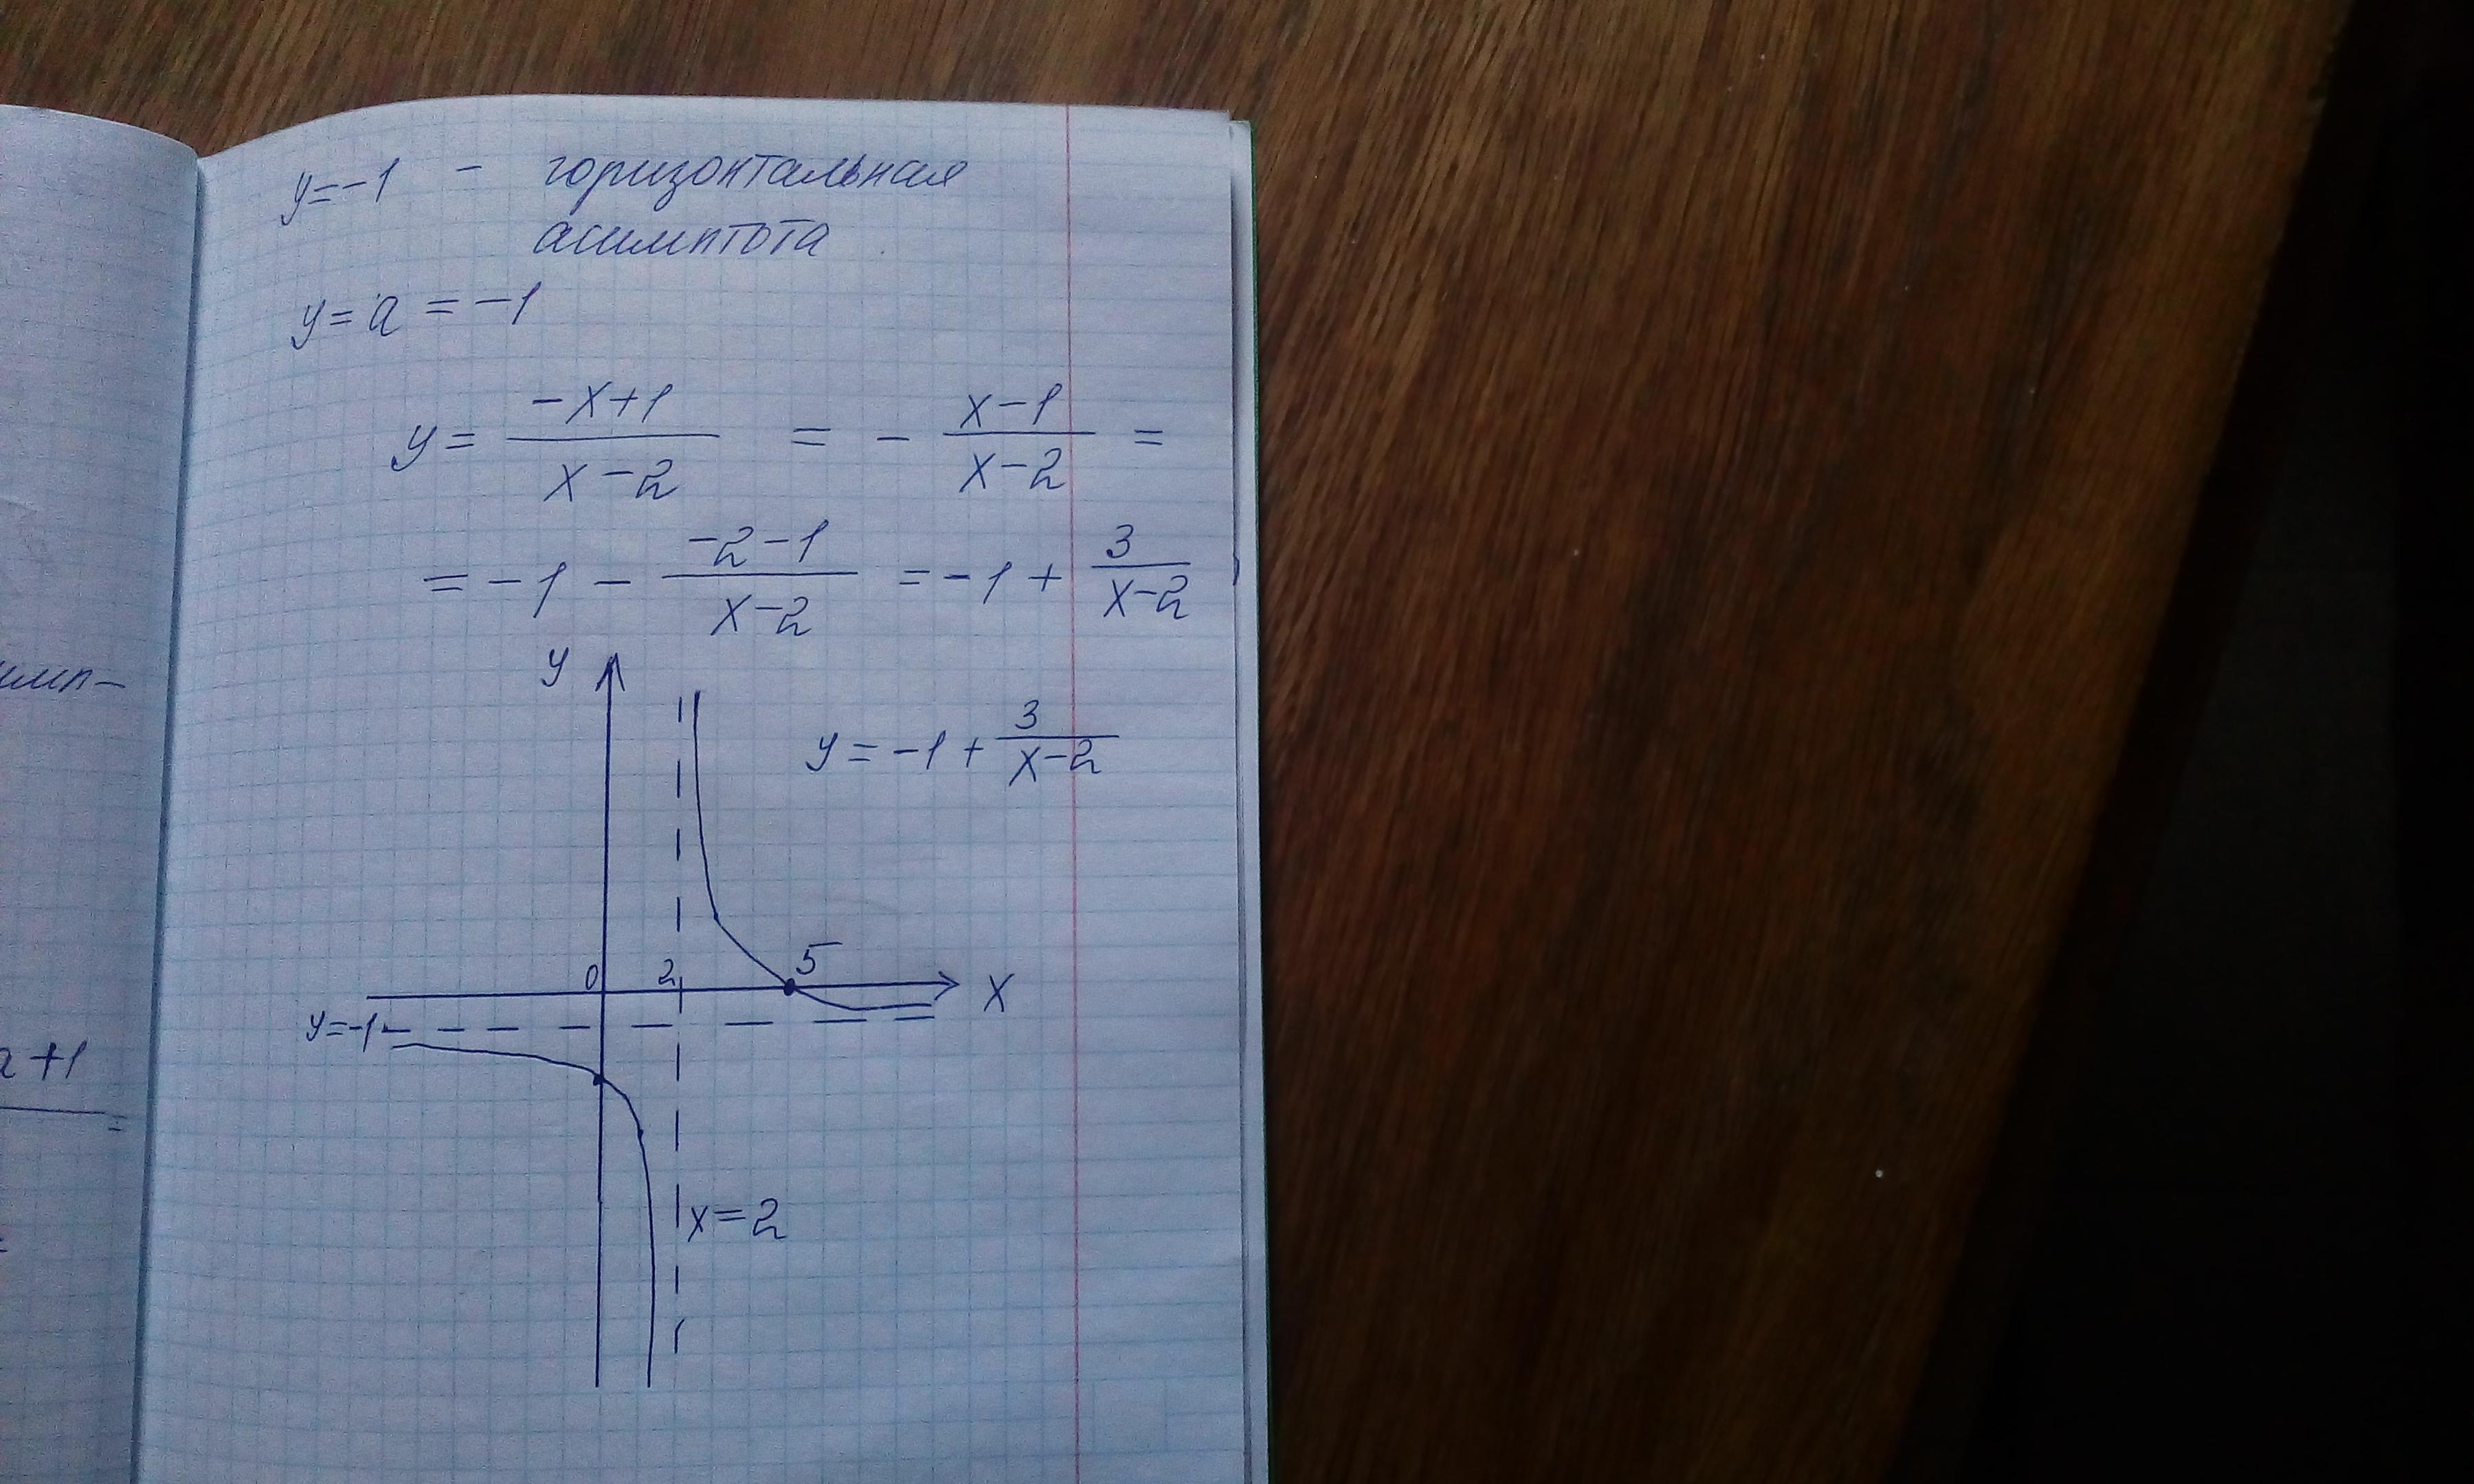 y=-1 - горизонтальная
асимптота
y=a=-1
y = \frac{-x+1}{x-2} = - \frac{x-1}{x-2} =
= -1 - \frac{-2-1}{x-2} = -1 + \frac{3}{x-2}
имп-
y
y = -1 + \frac{3}{x-2}
0 2 5
x
y=-1
a+1
=
x=2